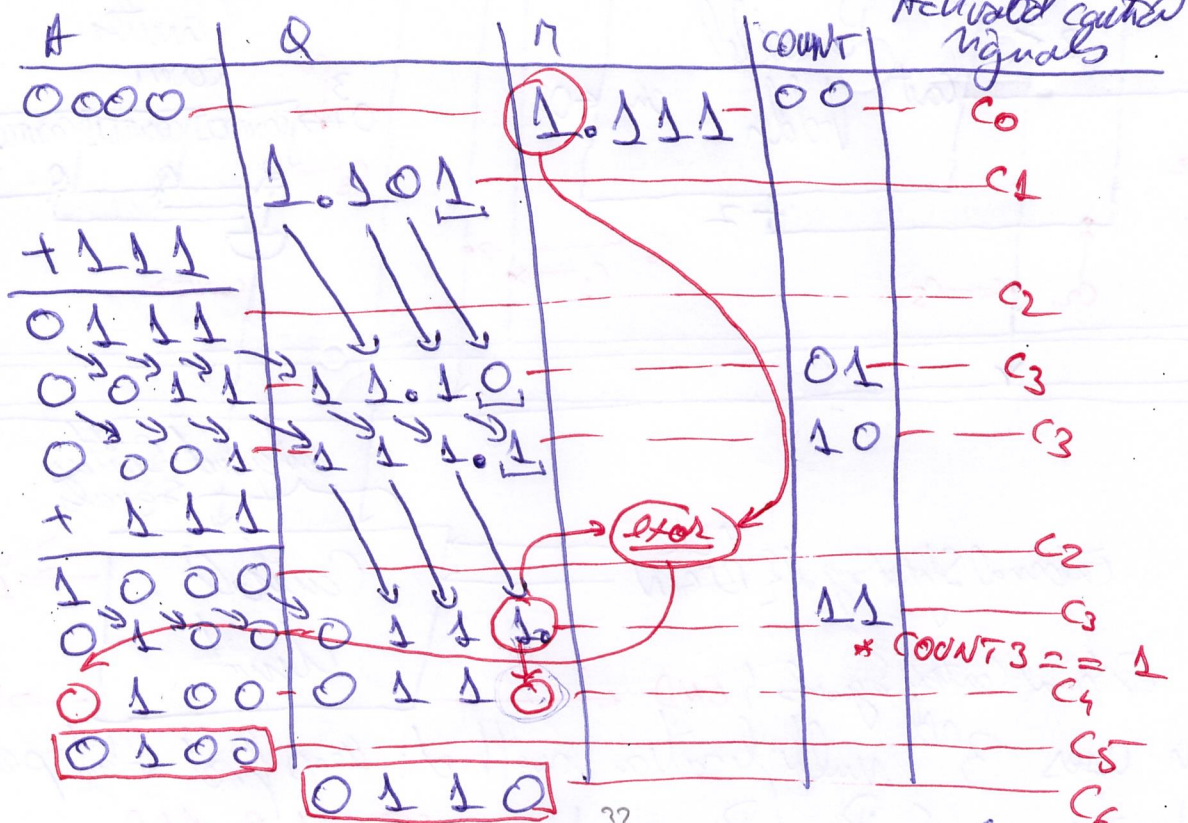 Activated control
A Q M COUNT signals
0000 1.111 00 C0
1.101 C1
+111
0111 C2
0011 11.10 01 C3
0001 111.1 10 C3
+ 111
exor
1000 C2
0100 0111. 11 C3
* COUNT3 == 1
0100 0110 C4
0100 C5
0110 C6
32